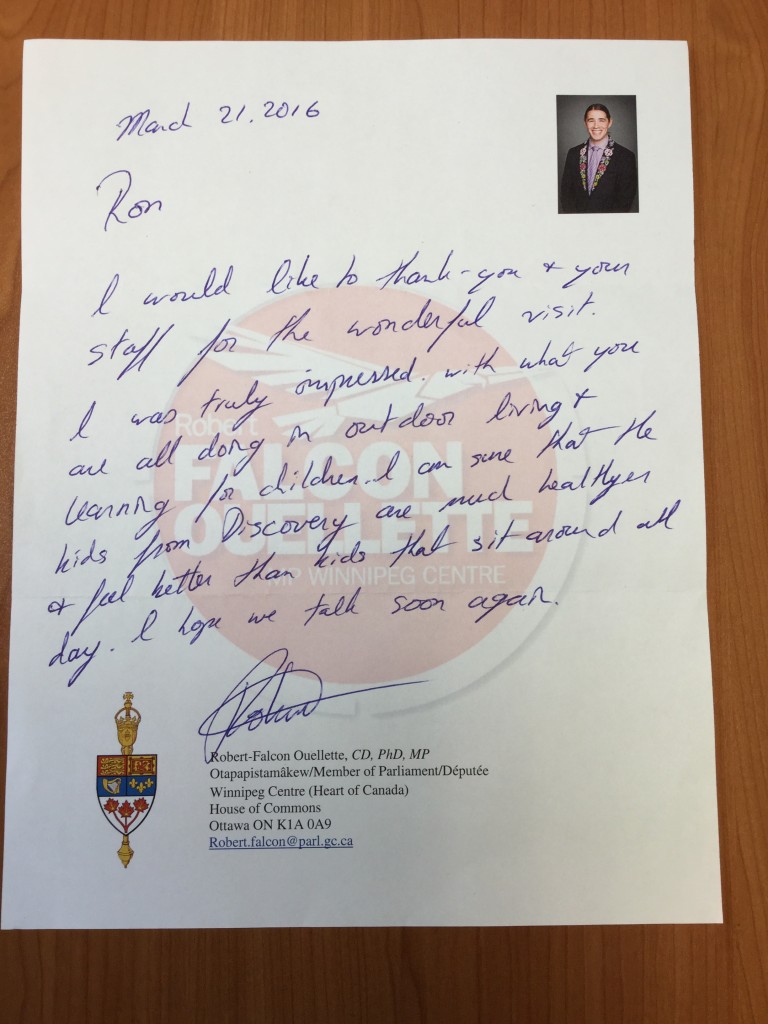 March 21, 2016
Ron
I would like to thank-you & your
staff for the wonderful visit.
I was truly impressed. with what you
are all doing in outdoor living &
learning for children. I am sure that the
kids from Discovery are much healthyer
& feel better than kids that sit around all
day. I hope we talk soon again.
Robert
FALCON
OUELLETTE
MP WINNIPEG CENTRE
Robert-Falcon Ouellette, CD, PhD, MP
Otapapistamâkew/Member of Parliament/Députée
Winnipeg Centre (Heart of Canada)
House of Commons
Ottawa ON K1A 0A9
Robert.falcon@parl.gc.ca